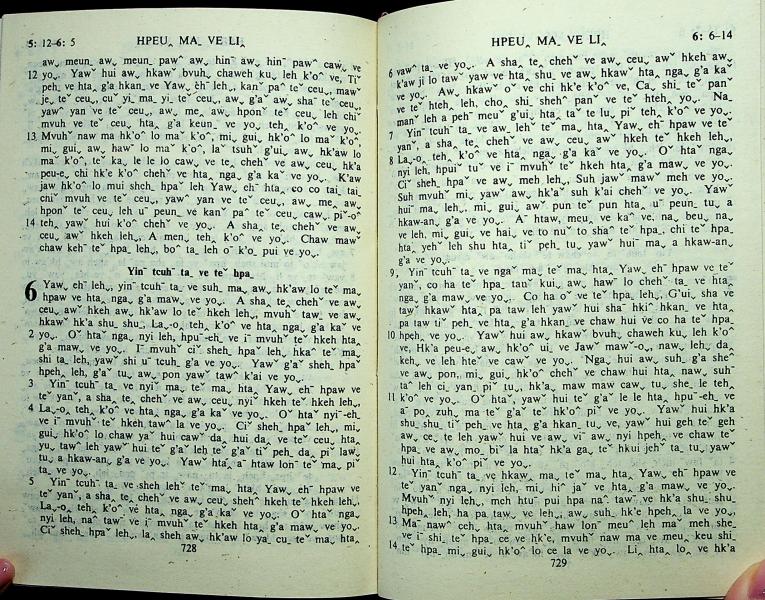 5: 12–6: 5 HPEU‸ MA_ VE LI‸
aw˯ meun_ aw˯ meun_ paw^ aw˯ hin¯ aw˯ hin¯ paw^ caw˯ ve
12 yo˯. Yawˇ hui aw˯ hkawˇ bvuh˯ chaweh ku˯ leh k'o^ ve, Ti
peh˯ ve hta‸ g'a hkan ve Yaw˯ eh¯ leh., kan¯ pa^ teˇ ceu˯, maw
je‸ teˇ ceu˯, cuˇ yi_ ma_ yi_ teˇ ceu˯, aw˯ g'aˇ aw˯ shaˇ teˇ ceu˯,
yaw^ yan¯ ve teˇ ceu˯, aw˯ me‸ aw˯ hpon¯ teˇ ceu˯ leh chiˇ
mvuh ve teˇ ceu˯ hta‸ g'a keun_ ve yo˯ teh‸ k'o^ ve yo˯.
13 Mvuhˇ naw ma hk'oˇ lo maˇ k'o^, mi_ gui‸ hk'oˇ lo maˇ k'o^,
mi_ gui‸ aw˯ hawˇ lo maˇ k'o^, laˇ tsuhˇ g'ui‸ aw˯ hk'aw lo
maˇ k'o^, teˇ ka‸ le le lo caw˯ ve te‸ chehˇ ve aw˯ ceu˯ hk'a
peu-e˯ chi hk'e k'o^ chehˇ ve hta‸ nga‸ g'a kaˇ ve yo˯. K'aw
jawˇ hk'oˇ lo mui sheh_ hpaˇ leh Yaw˯ eh¯ hta‸ co co tai_ tai_
chiˇ mvuh ve teˇ ceu˯, yaw^ yan ve teˇ ceu˯, aw˯ me‸ aw˯
hpon¯ teˇ ceu˯ leh u¯ peun˯ ve kan¯ pa^ teˇ ceu˯ caw˯ piˇ-oˇ
14 teh‸ yawˇ hui k'o^ chehˇ ve yo˯. A sha˯ te‸ chehˇ ve aw˯
ceu˯ awˇ hkeh leh., A men˯ teh‸ k'o^ ve yo˯. Chaw mawˇ
chaw kehˇ teˇ hpa˯ leh., bo^ ta˯ leh oˇ ko˯ pui ve yo˯.
Yin¯ tcuh¯ ta˯ ve teˇ hpa_
6 Yaw˯ eh¯ leh., yin¯ tcuh¯ ta˯ ve suh_ ma˯ aw˯ hk'aw lo teˇ ma˯
hpaw ve hta‸ nga‸ g'a maw ve yo˯. A sha˯ te‸ chehˇ ve aw˯
ceu˯ awˇ hkeh aw˯ hk'aw lo teˇ hkeh leh., mvuhˇ taw¯ ve aw˯
hkawˇ hk'a shu_ shu_ La˯-o‸ teh‸ k'o^ ve hta‸ nga‸ g'a kaˇ ve
2 yo˯. Oˇ htaˇ nga˯ nyi leh, hpu¯-eh˯ ve i¯ mvuhˇ teˇ hkeh hta‸
g'a maw˯ ve yo˯. I¯ mvuhˇ ciˇ sheh_ hpaˇ leh, hkaˇ teˇ ma˯
shi ta˯ leh, yawˇ shi uˇ tcuh_ g'a ve yo˯. Yawˇ g'aˇ sheh_ hpaˇ
hpeh‸ leh, g'aˇ tu˯ aw˯ pon yaw^ taw^ k'ai ve yo˯.
3 Yin¯ tcuh¯ ta˯ ve nyiˇ ma˯ teˇ ma˯ hta‸ Yaw˯ eh¯ hpaw ve
teˇ yanˇ, a sha˯ te‸ chehˇ ve aw˯ ceu˯ nyiˇ hkeh teˇ hkeh leh.,
4 La˯-o‸ teh‸ k'o^ ve hta‸ nga‸ g'a kaˇ ve yo˯. Oˇ htaˇ nyi¯-eh˯
ve i¯ mvuhˇ teˇ hkeh tawˇ la ve yo˯. Ciˇ sheh_ hpaˇ leh., mi_
gui‸ hk'oˇ lo chaw yaˇ hui cawˇ da‸ hui da‸ ve teˇ ceu˯ hta‸
yu˯ taw^ leh yawˇ hui teˇ g'aˇ leh teˇ g'aˇ tiˇ peh_ da‸ piˇ law˯
tu˯ a hkaw-an_ g'a ve yo˯. Yawˇ hta‸ a¯ htaw lon¯ teˇ ma˯ piˇ
ta˯ ve yo˯.
5 Yin¯ tcuh¯ ta˯ ve sheh˯ leh teˇ ma˯ hta‸, Yaw˯ eh¯ hpaw ve
teˇ yanˇ, a sha˯ te‸ chehˇ ve aw˯ ceu˯ sheh^ hkeh teˇ hkeh leh.,
La˯-o‸ teh‸ k'o^ ve hta‸ nga‸ g'a kaˇ ve yo˯. Oˇ htaˇ nga˯
nyi leh, na^ taw¯ ve i¯ mvuhˇ teˇ hkeh hta‸ g'a maw˯ ve yo˯.
Ciˇ sheh_ hpaˇ leh., la‸ sheh aw˯ hk'aw lo ya˯ cu˯ teˇ ma˯ hta‸
728
HPEU‸ MA_ VE LI‸ 6: 6–14
6 vaw^ ta˯ ve yo˯. A sha˯ te‸ chehˇ ve aw˯ ceu˯ awˇ hkeh aw˯
k'aw ji lo tawˇ yaw ve hta‸ shu_ ve aw˯ hkawˇ hta‸ nga‸ g'a kaˇ
ve yo˯. Aw˯ hkawˇ oˇ ve chi hk'e k'o^ ve, Ca˯ shi teˇ panˇ
ve teˇ hteh˯ leh, cho˯ shi_ shehˇ panˇ ve teˇ hteh_ yo˯. Na_
manˇ leh a peh¯ meuˇ g'ui˯ hta‸ taˇ te lu˯ piˇ teh‸ k'o^ ve yo˯.
7 Yin¯ tcuh¯ ta˯ ve aw˯ lehˇ teˇ ma˯ hta‸ Yaw˯ eh¯ hpaw ve te
yanˇ, a sha˯ te‸ chehˇ ve aw˯ ceu˯ awˇ hkeh teˇ hkeh leh.,
8 La˯-o‸ teh‸ k'o^ ve hta‸ nga‸ g'a kaˇ ve yo˯. Oˇ htaˇ nga˯
nyi leh, hpuiˇ tuˇ ve i¯ mvuhˇ teˇ hkeh hta‸ g'a maw˯ ve yo˯.
Ciˇ sheh_ hpaˇ ve aw˯ meh leh., Suh jawˇ mawˇ meh ve yo˯.
Suh mvuhˇ mi_ yawˇ aw˯ hk'aˇ suh k'ai chehˇ ve yo˯. Yawˇ
hui¯ ma˯ leh., mi_ gui‸ awˇ pun teˇ pun hta‸ u¯ peun˯ tu˯ a
hkaw-an_ g'a ve yo˯. A¯ htaw, meu˯ ve ka^ ve, na˯ beu˯ na˯
ve leh, mi_ gui‸ ve hai˯ ve to nuˇ to sha^ teˇ hpa˯, chi teˇ hpa˯
hta‸ yehˇ leh shu hta‸ tiˇ peh_ tu˯ yawˇ hui¯ ma˯ a hkaw-an_
g'a ve yo˯.
9 Yin¯ tcuh¯ ta˯ ve ngaˇ ma˯ teˇ ma˯ hta‸ Yaw˯ eh¯ hpaw ve teˇ
yanˇ, co ha˯ teˇ hpa˯ tan^ kui˯ aw˯ hawˇ lo chehˇ ta˯ ve hta‸
nga‸ g'a maw˯ ve yo˯. Co ha oˇ ve teˇ hpa˯ leh., G'ui˯ sha ve
tawˇ hkawˇ hta‸ pa taw leh yawˇ hui sha¯ hki^ hkan_ ve hta‸
pa taw tiˇ peh_ ve hta‸ g'a hkan_ ve chaw hui ve co ha teˇ hpa_
10 hpeh‸ ve yo˯. Yawˇ hui aw˯ hkawˇ bvuh˯ chaweh ku˯ leh k'o^
ve, Hk'a peu-e˯ aw˯ hk'oˇ ui˯ ve Jawˇ mawˇ-o˯ naw˯ leh˯ da˯
keh˯ ve leh teˇ ve cawˇ ve yo˯. Nga˯ hui aw˯ suh_ g'a sheˇ
ve aw˯ pon˯ mi_ gui‸ hk'o^ chehˇ ve chaw hui hta‸ naw˯ suh¯
taˇ leh ci˯ yan˯ piˇ tu˯, hk'a˯ maw maw caw˯ tu˯ she˯ le teh‸
11 k'o^ ve yo˯. Oˇ htaˇ, yawˇ hui teˇ g'aˇ le le hta‸ hpu¯-eh˯ ve
aˇ po˯ zuh˯ ma teˇ g'aˇ teˇ hk'o^ piˇ ve yo˯. Yawˇ hui hk'a
shu_ shu_ tiˇ peh_ ve hta‸ g'a hkan_ tu˯ ve, yawˇ hui geh teˇ geh
aw˯ ce˯ te leh yawˇ hui ve aw˯ viˇ aw˯ nyi hpeh‸ ve chaw teˇ
hpa˯ ve aw˯ mo˯ biˇ la htaˇ hk'a ga˯ teˇ hkui jehˇ ta˯ tu˯ yawˇ
hui hta‸ k'o^ piˇ ve yo˯.
12 Yin¯ tcuh¯ ta˯ ve hkawˇ ma˯ teˇ ma˯ hta‸ Yaw˯ eh¯ hpaw ve
teˇ yanˇ nga˯ nyi leh, mi_ hi^ jaˇ ve hta‸ g'a maw˯ ve yo˯.
Mvuhˇ nyi leh., meh htuˇ pui hpa na^ taw¯ ve hk'a shu_ shu_
hpeh‸ leh, ha pa taw˯ ve leh., aw˯ suh_ hk'e hpeh‸ la ve yo˯,
13 Maˇ nawˇ ceh˯ hta‸ mvuhˇ haw lon¯ meuˇ leh maˇ meh she_
ve iˇ shi_ teˇ hpa˯ ce ve hk'e, mvuhˇ naw ma ve meu˯ keu shi_
14 teˇ hpa˯ mi_ gui‸ hk'oˇ lo ce la ve yo˯. Li‸ hta‸ lo‸ ve hk'a
729